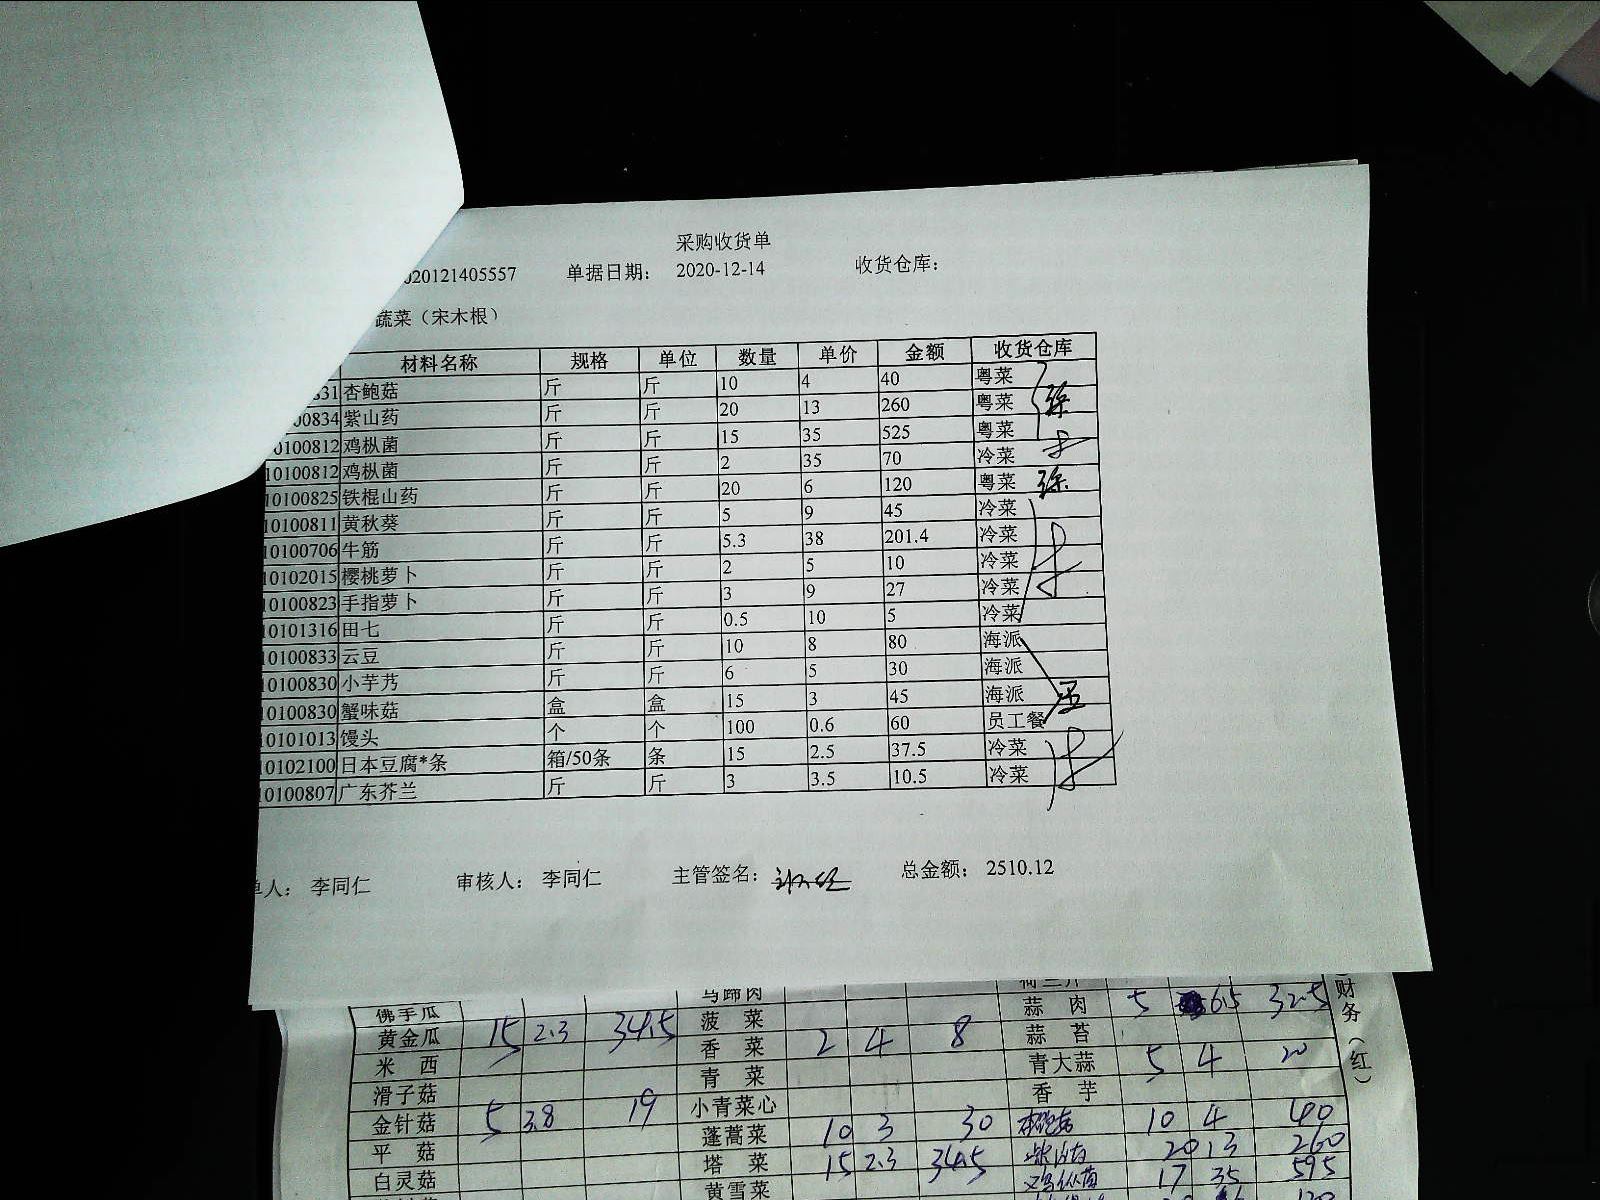 采购收货单
020121405557 单据日期： 2020-12-14 收货仓库：
蔬菜（宋木根）
材料名称 规格 单位 数量 单价 金额 收货仓库
831 杏鲍菇 斤 斤 10 4 40 粤菜
00834 紫山药 斤 斤 20 13 260 粤菜 徐
0100812 鸡枞菌 斤 斤 15 35 525 粤菜
10100812 鸡枞菌 斤 斤 2 35 70 冷菜
10100825 铁棍山药 斤 斤 20 6 120 粤菜 徐
10100811 黄秋葵 斤 斤 5 9 45 冷菜
10100706 牛筋 斤 斤 5.3 38 201.4 冷菜
10102015 樱桃萝卜 斤 斤 2 5 10 冷菜
10100823 手指萝卜 斤 斤 3 9 27 冷菜
10101316 田七 斤 斤 0.5 10 5 冷菜
10100833 云豆 斤 斤 10 8 80 海派
10100830 小芋艿 斤 斤 6 5 30 海派
10100830 蟹味菇 盒 盒 15 3 45 海派
10101013 馒头 个 个 100 0.6 60 员工餐
10102100 日本豆腐*条 箱/50条 条 15 2.5 37.5 冷菜
10100807 广东芥兰 斤 斤 3 3.5 10.5 冷菜
单人： 李同仁 审核人： 李同仁 主管签名： 总金额： 2510.12
佛手瓜 马蹄肉 蒜肉 5 6.5 32.5
黄金瓜 15 2.3 34.5 菠菜 蒜苔
米西 香菜 2 4 8 青大蒜 5 4 20
滑子菇 青菜 香芋
金针菇 5 3.8 19 小青菜心 杏鲍菇 10 4 40
平菇 蓬蒿菜 10 3 30 紫山药 20 13 260
白灵菇 塔菜 15 2.3 34.5 鸡枞菌 17 35 595
黄雪菜
财务（红）